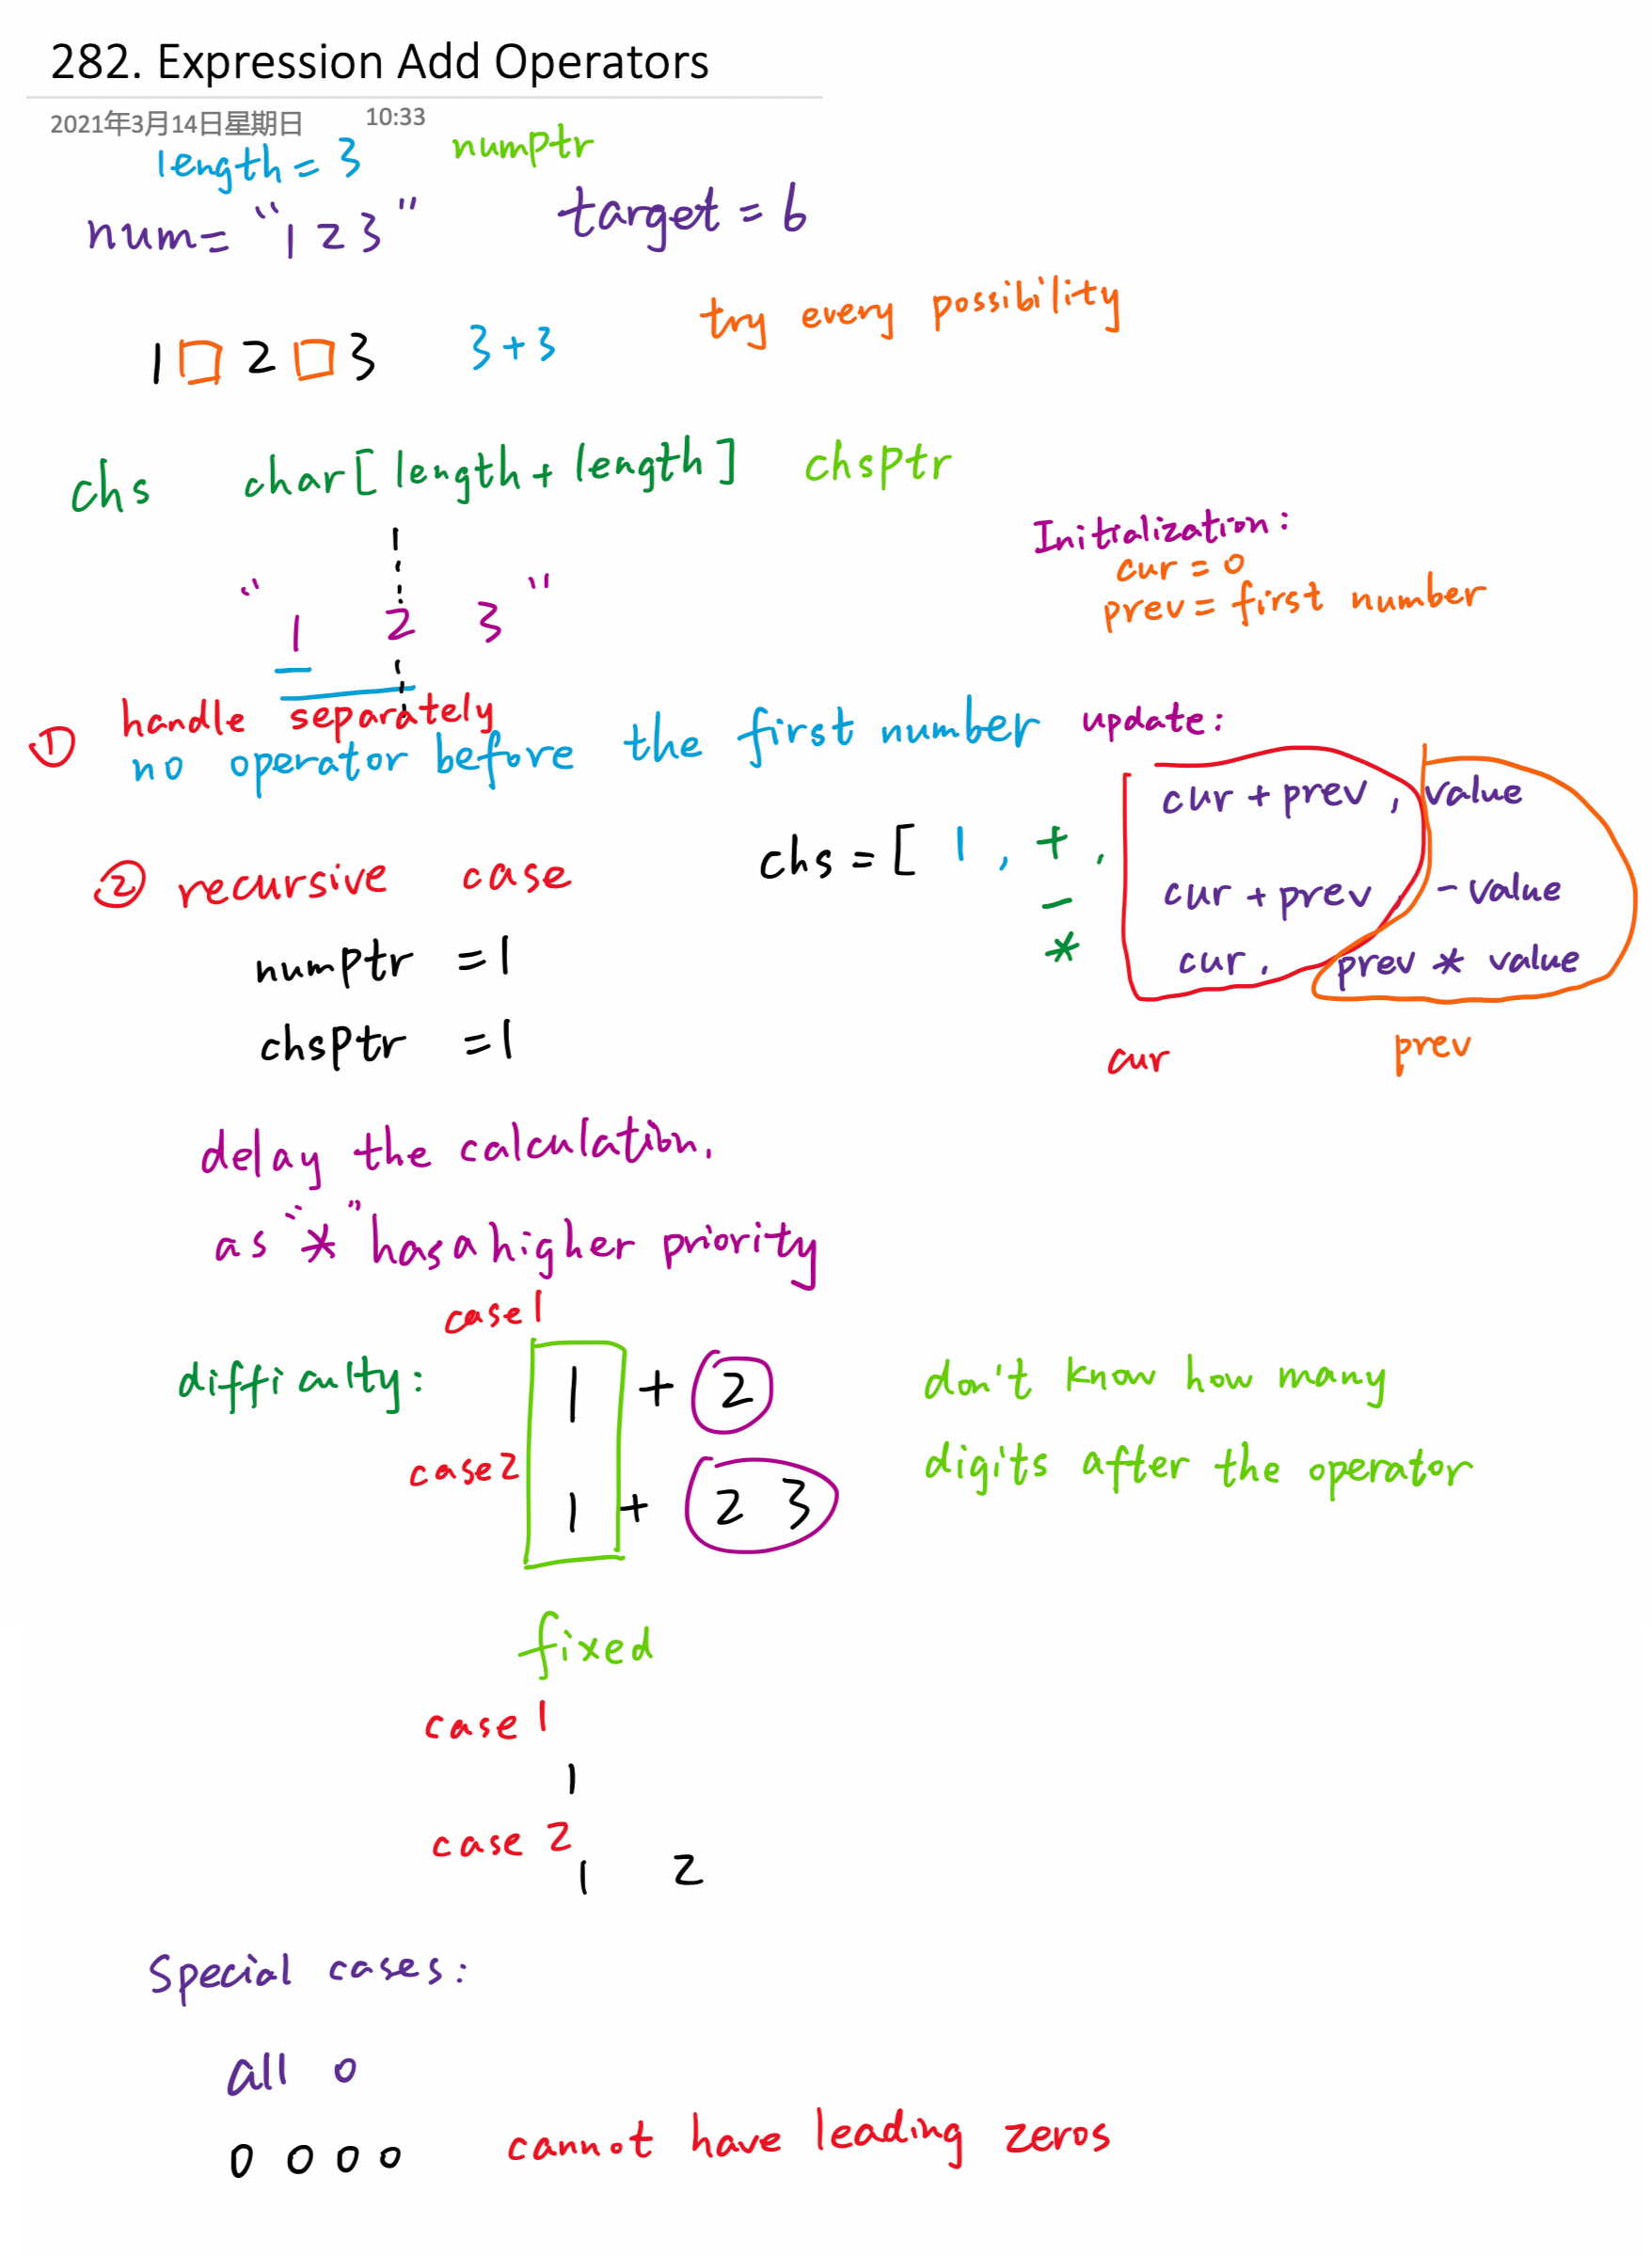 282. Expression Add Operators
2021年3月14日星期日 10:33
length = 3 numptr
num= "1 2 3" target = 6
try every possibility
1 □ 2 □ 3 3+3
chs char[length + length] chsptr
Initialization:
cur = 0
prev = first number
" 1 2 3 "
① handle separately
no operator before the first number
update:
cur + prev, value
chs = [ 1 , + ,
cur + prev, - value
-
*
cur, prev * value
cur prev
② recursive case
numptr = 1
chsptr = 1
delay the calculation.
as "*" has a higher priority
case 1
difficulty: 1 + 2 don't know how many
case 2 1 + 2 3 digits after the operator
fixed
case 1
1
case 2
1 2
Special cases:
all 0
0 0 0 0 cannot have leading zeros